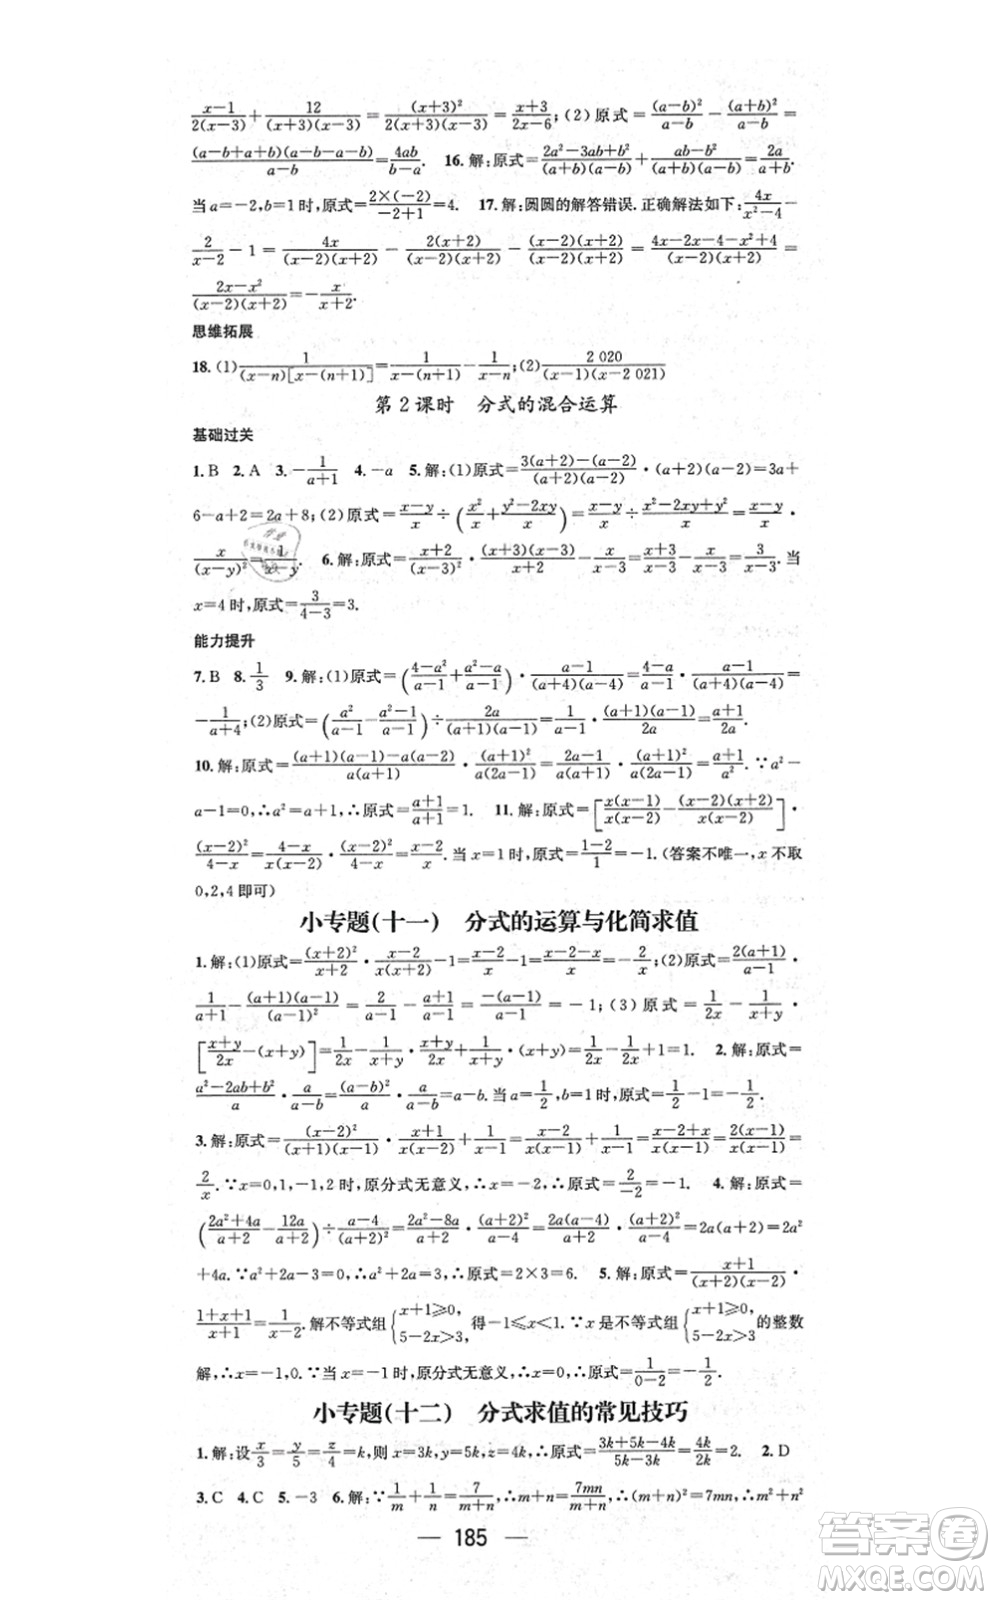 (x-1)/(2(x-3))+12/((x+3)(x-3))=(x+3)²/(2(x+3)(x-3))=(x+3)/(2x-6);(2)原式=(a-b)²/(a-b)-(a+b)²/(a-b)=
(a-b+a+b)(a-b-a-b)/(a-b)=4ab/(b-a). 16.解:原式=(2a²-3ab+b²)/((a+b)(a-b))+(ab-b²)/((a+b)(a-b))=2a/(a+b).
当a=-2,b=1时,原式=2×(-2)/(-2+1)=4. 17.解:圆圆的解答错误.正确解法如下:4x/(x²-4)-
2/(x-2)-1=4x/((x-2)(x+2))-2(x+2)/((x-2)(x+2))-(x-2)(x+2)/((x-2)(x+2))=(4x-2x-4-x²+4)/((x-2)(x+2))=
(2x-x²)/((x-2)(x+2))=-x/(x+2).
思维拓展
18.(1)1/((x-n)[x-(n+1)])=1/(x-(n+1))-1/(x-n);(2)2 020/((x-1)(x-2 021))
第2课时 分式的混合运算
基础过关
1.B 2.A 3.-1/(a+1) 4.-a 5.解:(1)原式=(3(a+2)-(a-2))/((a+2)(a-2))·(a+2)(a-2)=3a+
6-a+2=2a+8;(2)原式=(x-y)/x÷(x²/x+(y²-2xy)/x)=(x-y)/x÷(x²-2xy+y²)/x=(x-y)/x·
x/(x-y)²=1/(x-y). 6.解:原式=(x+2)/(x-3)²·(x+3)(x-3)/(x+2)-x/(x-3)=(x+3)/(x-3)-x/(x-3)=3/(x-3).当
x=4时,原式=3/(4-3)=3.
能力提升
7.B 8.1/3 9.解:(1)原式=((4-a²)/(a-1)+(a²-a)/(a-1))·(a-1)/((a+4)(a-4))=(4-a)/(a-1)·(a-1)/((a+4)(a-4))=
-1/(a+4);(2)原式=(a²/(a-1)-(a²-1)/(a-1))÷2a/((a+1)(a-1))=1/(a-1)·(a+1)(a-1)/2a=(a+1)/2a.
10.解:原式=((a+1)(a-1)-a(a-2))/(a(a+1))·(a+1)²/(a(2a-1))=(2a-1)/(a(a+1))·(a+1)²/(a(2a-1))=(a+1)/a².∵a²-
a-1=0,∴a²=a+1,∴原式=(a+1)/(a+1)=1. 11.解:原式=[x(x-1)/(x(x-2))-(x-2)(x+2)/(x(x-2))]·
(x-2)²/(4-x)=(4-x)/(x(x-2))·(x-2)²/(4-x)=(x-2)/x.当x=1时,原式=(1-2)/1=-1.(答案不唯一,x不取
0,2,4即可)
小专题(十一) 分式的运算与化简求值
1.解:(1)原式=(x+2)²/(x+2)·(x-2)/(x(x+2))-1=(x-2)/x-1=(x-2-x)/x=-2/x;(2)原式=2(a+1)/(a-1)·
1/(a+1)-(a+1)(a-1)/(a-1)²=2/(a-1)-(a+1)/(a-1)=-(a-1)/(a-1)=-1;(3)原式=1/2x-1/(x+y)·
[(x+y)/2x-(x+y)]=1/2x-1/(x+y)·(x+y)/2x+1/(x+y)·(x+y)=1/2x-1/2x+1=1. 2.解:原式=
(a²-2ab+b²)/a·a/(a-b)=(a-b)²/a·a/(a-b)=a-b.当a=1/2,b=1时,原式=1/2-1=-1/2.
3.解:原式=(x-2)²/((x+1)(x-1))·(x+1)/(x(x-2))+1/(x-1)=(x-2)/(x(x-1))+1/(x-1)=(x-2+x)/(x(x-1))=2(x-1)/(x(x-1))=
2/x.∵x=0,1,-1,2时,原分式无意义,∴x=-2,∴原式=2/(-2)=-1. 4.解:原式=
((2a²+4a)/(a+2)-12a/(a+2))÷(a-4)/(a+2)²=(2a²-8a)/(a+2)·(a+2)²/(a-4)=2a(a-4)/(a+2)·(a+2)²/(a-4)=2a(a+2)=2a²
+4a.∵a²+2a-3=0,∴a²+2a=3,∴原式=2×3=6. 5.解:原式=(x+1)/((x+2)(x-2))·
(1+x+1)/(x+1)=1/(x-2).解不等式组{x+1≥0,5-2x>3,得-1≤x<1.∵x是不等式组{x+1≥0,5-2x>3的整数
解,∴x=-1,0.∵当x=-1时,原分式无意义,∴x=0,∴原式=1/(0-2)=-1/2.
小专题(十二) 分式求值的常见技巧
1.解:设x/3=y/5=z/4=k,则x=3k,y=5k,z=4k,∴原式=(3k+5k-4k)/(5k-3k)=4k/2k=2. 2.D
3.C 4.C 5.-3 6.解:∵1/m+1/n=7/(m+n),∴m+n=7mn/(m+n),∴(m+n)²=7mn,∴m²+n²
— 185 —
答案卷
MXQE.COM